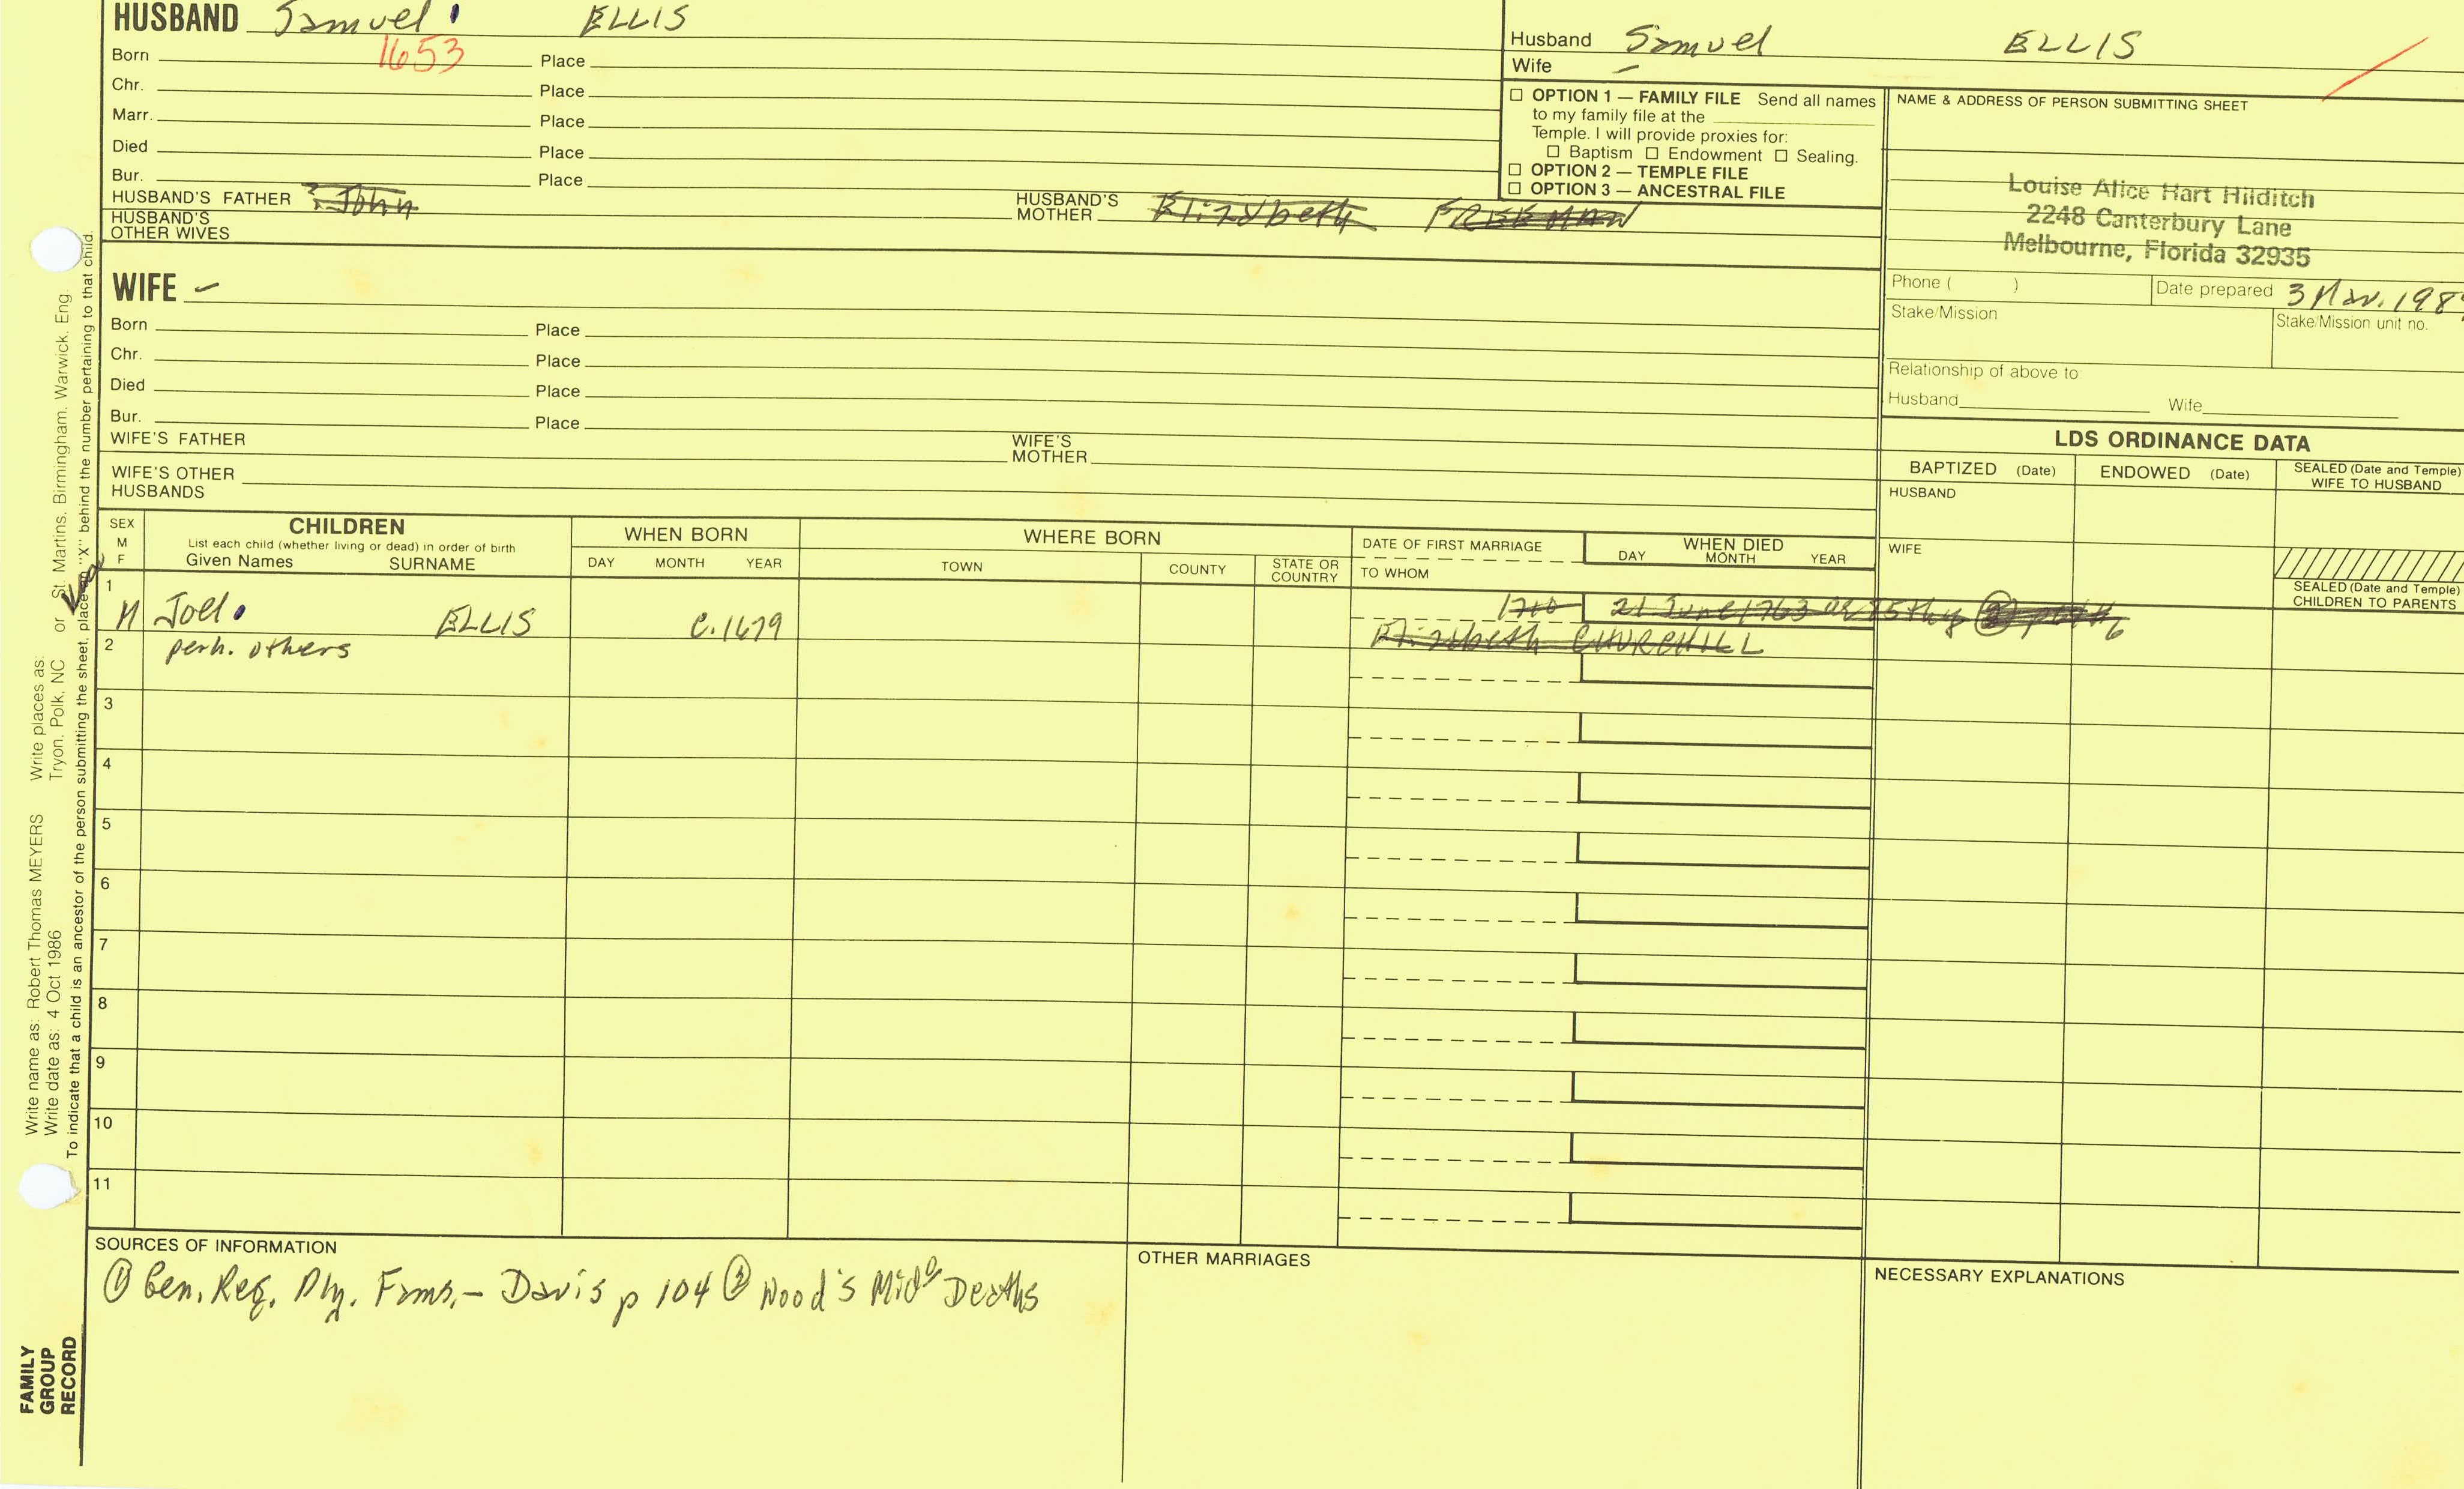 HUSBAND Samuel ELLIS
Born 1653 Place
Chr. Place
Marr. Place
Died Place
Bur. Place
HUSBAND'S FATHER ? John HUSBAND'S MOTHER Elizabeth FREEMAN
HUSBAND'S OTHER WIVES
Husband Samuel ELLIS
Wife –
☐ OPTION 1 — FAMILY FILE Send all names
to my family file at the
Temple. I will provide proxies for:
☐ Baptism ☐ Endowment ☐ Sealing.
☐ OPTION 2 — TEMPLE FILE
☐ OPTION 3 — ANCESTRAL FILE
NAME & ADDRESS OF PERSON SUBMITTING SHEET
Louise Alice Hart Hilditch
2248 Canterbury Lane
Melbourne, Florida 32935
Phone ( ) Date prepared 3 Mar. 198
Stake/Mission Stake/Mission unit no.
Relationship of above to
Husband Wife
WIFE –
Born Place
Chr. Place
Died Place
Bur. Place
WIFE'S FATHER WIFE'S MOTHER
WIFE'S OTHER HUSBANDS
LDS ORDINANCE DATA
BAPTIZED (Date) ENDOWED (Date) SEALED (Date and Temple) WIFE TO HUSBAND
HUSBAND
WIFE
SEALED (Date and Temple) CHILDREN TO PARENTS
SEX M F
CHILDREN
List each child (whether living or dead) in order of birth
Given Names SURNAME
WHEN BORN
DAY MONTH YEAR
WHERE BORN
TOWN COUNTY STATE OR COUNTRY
DATE OF FIRST MARRIAGE
TO WHOM
WHEN DIED
DAY MONTH YEAR
1 M Joel ELLIS c.1679 1710 21 June 1763 ae 85th y
Elizabeth CHURCHILL
2 perh. others
3
4
5
6
7
8
9
10
11
SOURCES OF INFORMATION
① Gen. Reg. Ply. Fams.– Davis p 104 ② Wood's Midº Deaths
OTHER MARRIAGES
NECESSARY EXPLANATIONS
Write name as: Robert Thomas MEYERS Write places as:
Write date as: 4 Oct 1986 Tryon, Polk, NC or St. Martins, Birmingham, Warwick, Eng.
To indicate that a child is an ancestor of the person submitting the sheet, place an "X" behind the number pertaining to that child.
FAMILY
GROUP
RECORD